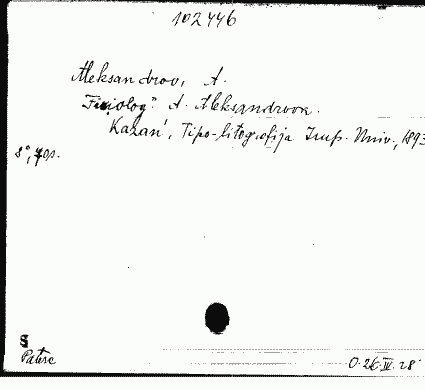 102446
Aleksandrov, A.
"Fiziolog" A. Aleksandrova.
Kazan', Tipo-litografija Imp. Univ., 1893
8°, 40p.
S
Paterc
O. 26.IV.28